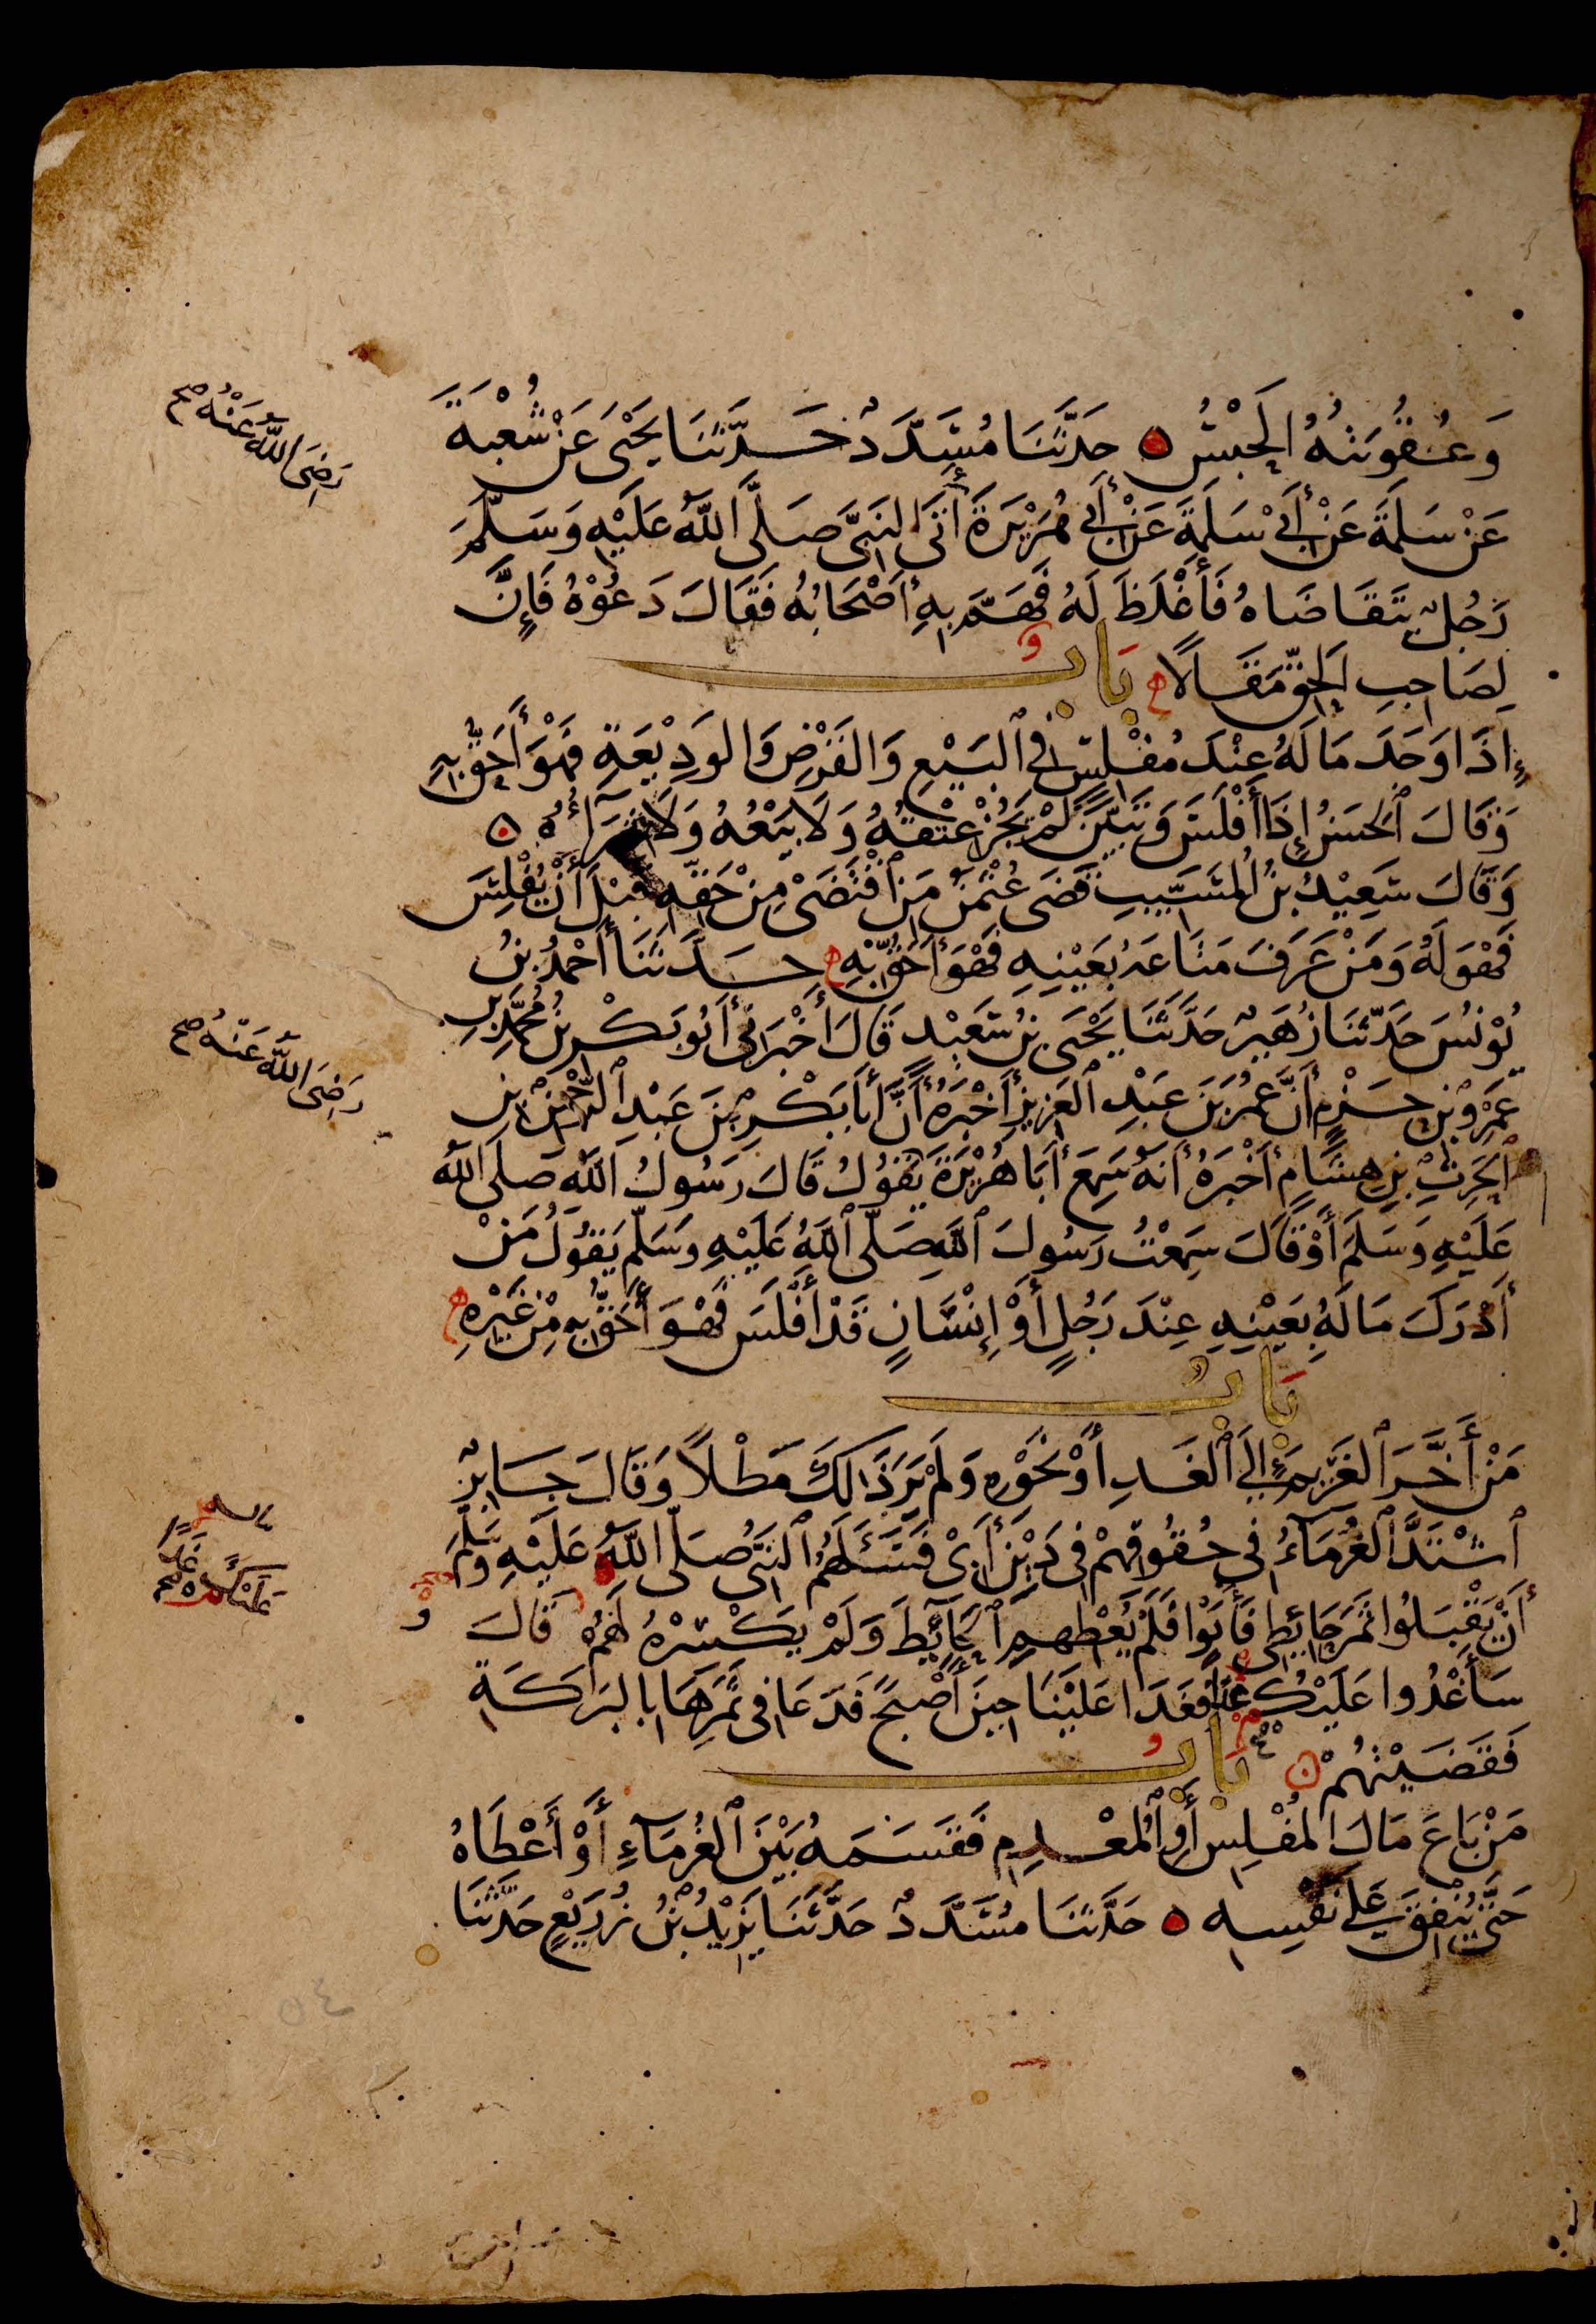 وَعُقُوبَتُهُ الحَبْسُ ۝ حَدَّثَنَا مُسَدَّدٌ حَدَّثَنَا يَحْيَى عَنْ شُعْبَةَ
عَنْ سَلَمَةَ عَنْ أَبِي سَلَمَةَ عَنْ أَبِي هُرَيْرَةَ أَتَى النَّبِيَّ صَلَّى اللَّهُ عَلَيْهِ وَسَلَّمَ
رَضِيَ اللَّهُ عَنْهُ صح
رَجُلٌ يَتَقَاضَاهُ فَأَغْلَظَ لَهُ فَهَمَّ بِهِ أَصْحَابُهُ فَقَالَ دَعُوْهُ فَإِنَّ
لِصَاحِبِ الحَقِّ مَقَالًا ه بَابٌ
إِذَا وَجَدَ مَالَهُ عِنْدَ مُفْلِسٍ فِي ٱلبَيْعِ وَالقَرْضِ وَالوَدِيْعَةِ فَهْوَ أَحَقُّ بِهِ
وَقَالَ ٱلحَسَنُ إِذَا أَفْلَسَ وَتَبَيَّنَ لَمْ يَجُزْ عِتْقُهُ وَلَا بَيْعُهُ وَلَا شِرَآؤُهُ ۝
وَقَالَ سَعِيْدُ بنُ المُسَيِّبِ قَضَى عُثْمٰنُ مَنِ ٱقْتَضَى مِنْ حَقِّهِ قَبْلَ أَنْ يُفْلِسَ
فَهْوَ لَهُ وَمَنْ عَرَفَ مَتَاعَهُ بِعَيْنِهِ فَهْوَ أَحَقُّ بِهِ ه حَدَّثَنَا أَحْمَدُ بنُ
يُوْنُسَ حَدَّثَنَا زُهَيْرٌ حَدَّثَنَا يَحْيَى بنُ سَعِيْدٍ قَالَ أَخْبَرَنِي أَبُو بَكْرِ بنُ مُحَمَّدِ بنِ
عَمْرِو بنِ حَزْمٍ أَنَّ عُمَرَ بنَ عَبْدِ ٱلعَزِيزِ أَخْبَرَهُ أَنَّ أَبَا بَكْرِ بنَ عَبْدِ ٱلرَّحْمٰنِ بنِ
ٱلحٰرِثِ بنِ هِشَامٍ أَخْبَرَهُ أَنَّهُ سَمِعَ أَبَا هُرَيْرَةَ يَقُوْلُ قَالَ رَسُوْلُ اللَّهِ صَلَّى اللَّهُ
رَضِيَ اللَّهُ عَنْهُ صح
عَلَيْهِ وَسَلَّمَ أَوْ قَالَ سَمِعْتُ رَسُولَ ٱللَّهِ صَلَّى ٱللَّهُ عَلَيْهِ وَسَلَّمَ يَقُوْلُ مَنْ
أَدْرَكَ مَالَهُ بِعَيْنِهِ عِنْدَ رَجُلٍ أَوْ إِنْسَانٍ قَدْ أَفْلَسَ فَهْوَ أَحَقُّ بِهِ مِنْ غَيْرِهِ ه
بَابٌ
مَنْ أَخَّرَ ٱلغَرِيْمَ إِلَى ٱلغَدِ أَوْ نَحْوِهِ وَلَمْ يَرَ ذَالِكَ مَطْلًا وَقَالَ جَابِرٌ
ٱشْتَدَّ ٱلغُرَمَآءُ فِي حُقُوقِهِمْ فِي دَيْنِ أَبِي فَسَأَلَهُمُ ٱلنَّبِيُّ صَلَّى اللَّهُ عَلَيْهِ وَسَلَّمَ
أَنْ يَقْبَلُوا ثَمَرَ حَائِطِي فَأَبَوْا فَلَمْ يُعْطِهِمِ ٱلحَآئِطَ وَلَمْ يَكْسِرْهُ لَهُمْ قَالَ
سَأَغْدُوا عَلَيْكَ غَدًا فَغَدَا عَلَيْنَا حِيْنَ أَصْبَحَ فَدَعَا فِي ثَمَرِهَا بِالبَرَكَةِ
عَلَيْكُمْ غَدًا صح
فَقَضَيْتُهُمْ ۝ بَابٌ
مَنْ بَاعَ مَالَ المُفْلِسِ أَوِ ٱلمُعْدِمِ فَقَسَمَهُ بَيْنَ ٱلغُرَمَآءِ أَوْ أَعْطَاهُ
حَتَّى يُنْفِقَ عَلَى نَفْسِهِ ۝ حَدَّثَنَا مُسَدَّدٌ حَدَّثَنَا يَزِيْدُ بْنُ زُرَيْعٍ حَدَّثَنَا
٥٤